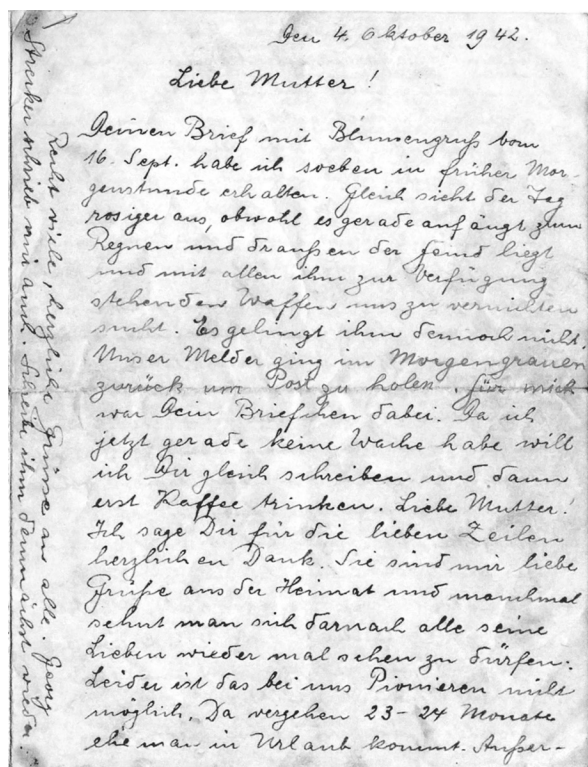 Den 4. Oktober 1942.
Liebe Mutter!
Deinen Brief mit Blumengruß vom
16. Sept. habe ich soeben in früher Mor-
genstunde erhalten. Gleich sieht der Tag
rosiger aus, obwohl es gerade anfängt zum
Regnen und draußen der Feind liegt
und mit allen ihm zur Verfügung
stehenden Waffen uns zu vernichten
sucht. Es gelingt ihm dennoch nicht.
Unser Melder ging im Morgengrauen
zurück um Post zu holen. Für mich
war Dein Briefchen dabei. Da ich
jetzt gerade keine Wache habe will
ich Dir gleich schreiben und dann
erst Kaffee trinken. Liebe Mutter!
Ich sage Dir für die lieben Zeilen
herzlichen Dank. Sie sind mir liebe
Grüße aus der Heimat und manchmal
sehnt man sich darnach alle seine
Lieben wieder mal sehen zu dürfen.
Leider ist das bei uns Pionieren nicht
möglich. Da vergehen 23-24 Monate
ehe man in Urlaub kommt. Außer-
Recht viele, herzliche Grüsse an alle. Georg
schrieb mir auch. Schreibe ihm demnächst wieder.